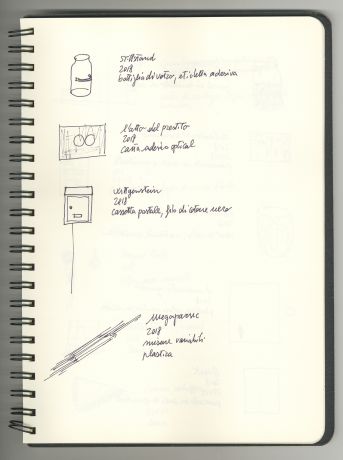 2018
bottiglia di vetro, etichetta adesiva
l'atto del prestito
2018
carta adesiva optical
wittgenstein
2018
cassetta postale, filo di cotone nero
megaparsec
2018
misure variabili
plastica